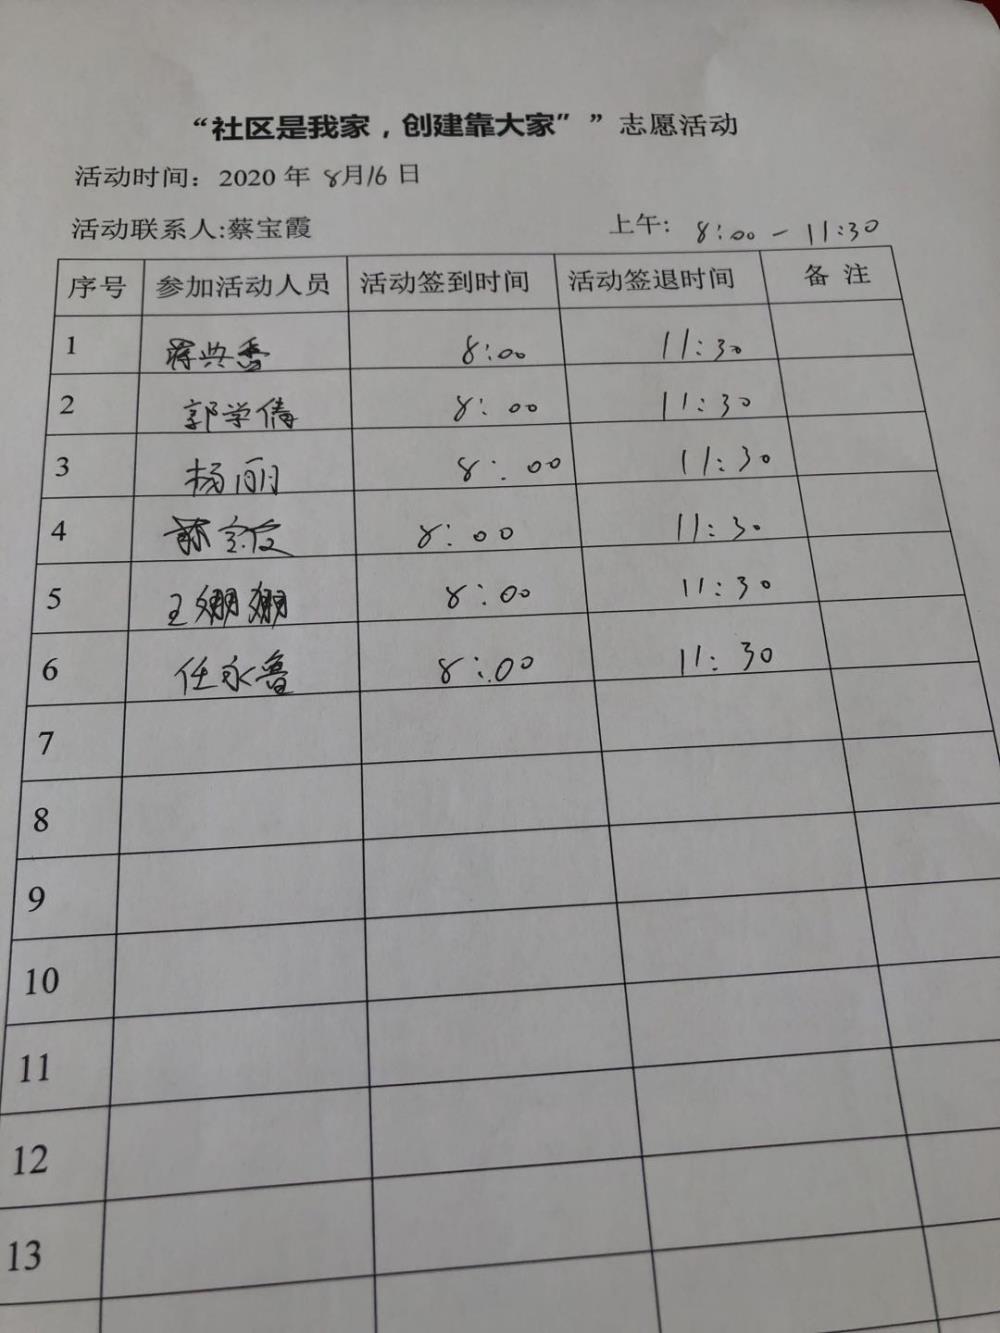 “社区是我家，创建靠大家””志愿活动
活动时间：2020年 8月16日
活动联系人:蔡宝霞 上午: 8:00-11:30
序号 参加活动人员 活动签到时间 活动签退时间 备 注
1 蒋典香 8:00 11:30
2 郭学倩 8:00 11:30
3 杨丽 8:00 11:30
4 8:00 11:30
5 王姗姗 8:00 11:30
6 任永鲁 8:00 11:30
7
8
9
10
11
12
13